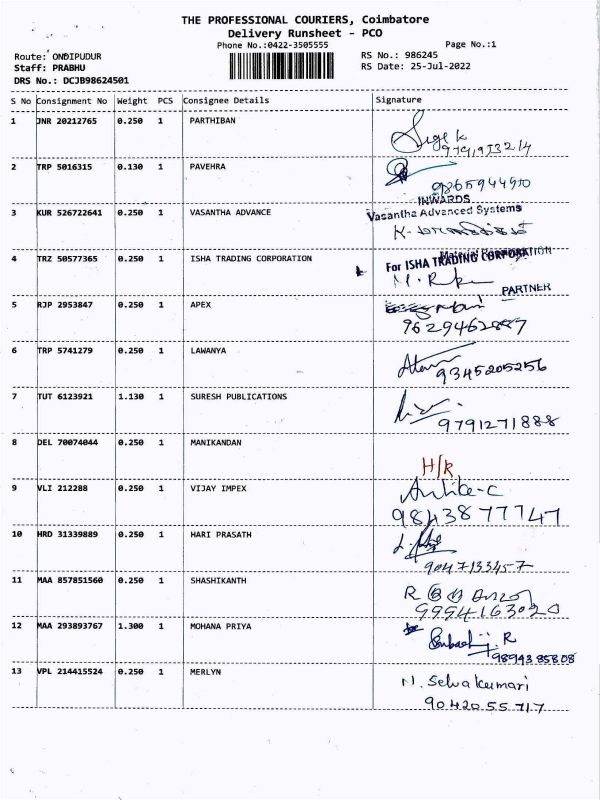 THE PROFESSIONAL COURIERS, Coimbatore
Delivery Runsheet - PCO
Phone No.:0422-3505555 Page No.:1
Route: ONDIPUDUR RS No.: 986245
Staff: PRABHU RS Date: 25-Jul-2022
DRS No.: DCJB98624501
S No Consignment No Weight PCS Consignee Details Signature
1 JNR 20212765 0.250 1 PARTHIBAN
2 TRP 5016315 0.130 1 PAVEHRA
9865944970
INWARDS
3 KUR 526722641 0.250 1 VASANTHA ADVANCE Vasantha Advanced Systems
4 TRZ 50577365 0.250 1 ISHA TRADING CORPORATION For ISHA TRADING CORPORATION
PARTNER
5 RJP 2953847 0.250 1 APEX
6 TRP 5741279 0.250 1 LAWANYA
9345205256
7 TUT 6123921 1.130 1 SURESH PUBLICATIONS
9791271888
8 DEL 70074044 0.250 1 MANIKANDAN
H/R
9 VLI 212288 0.250 1 VIJAY IMPEX
9843877747
10 HRD 31339889 0.250 1 HARI PRASATH
9047133457
11 MAA 857851560 0.250 1 SHASHIKANTH
9994163020
12 MAA 293893767 1.300 1 MOHANA PRIYA
9894385808
13 VPL 214415524 0.250 1 MERLYN N. Selvakumari
9042055717